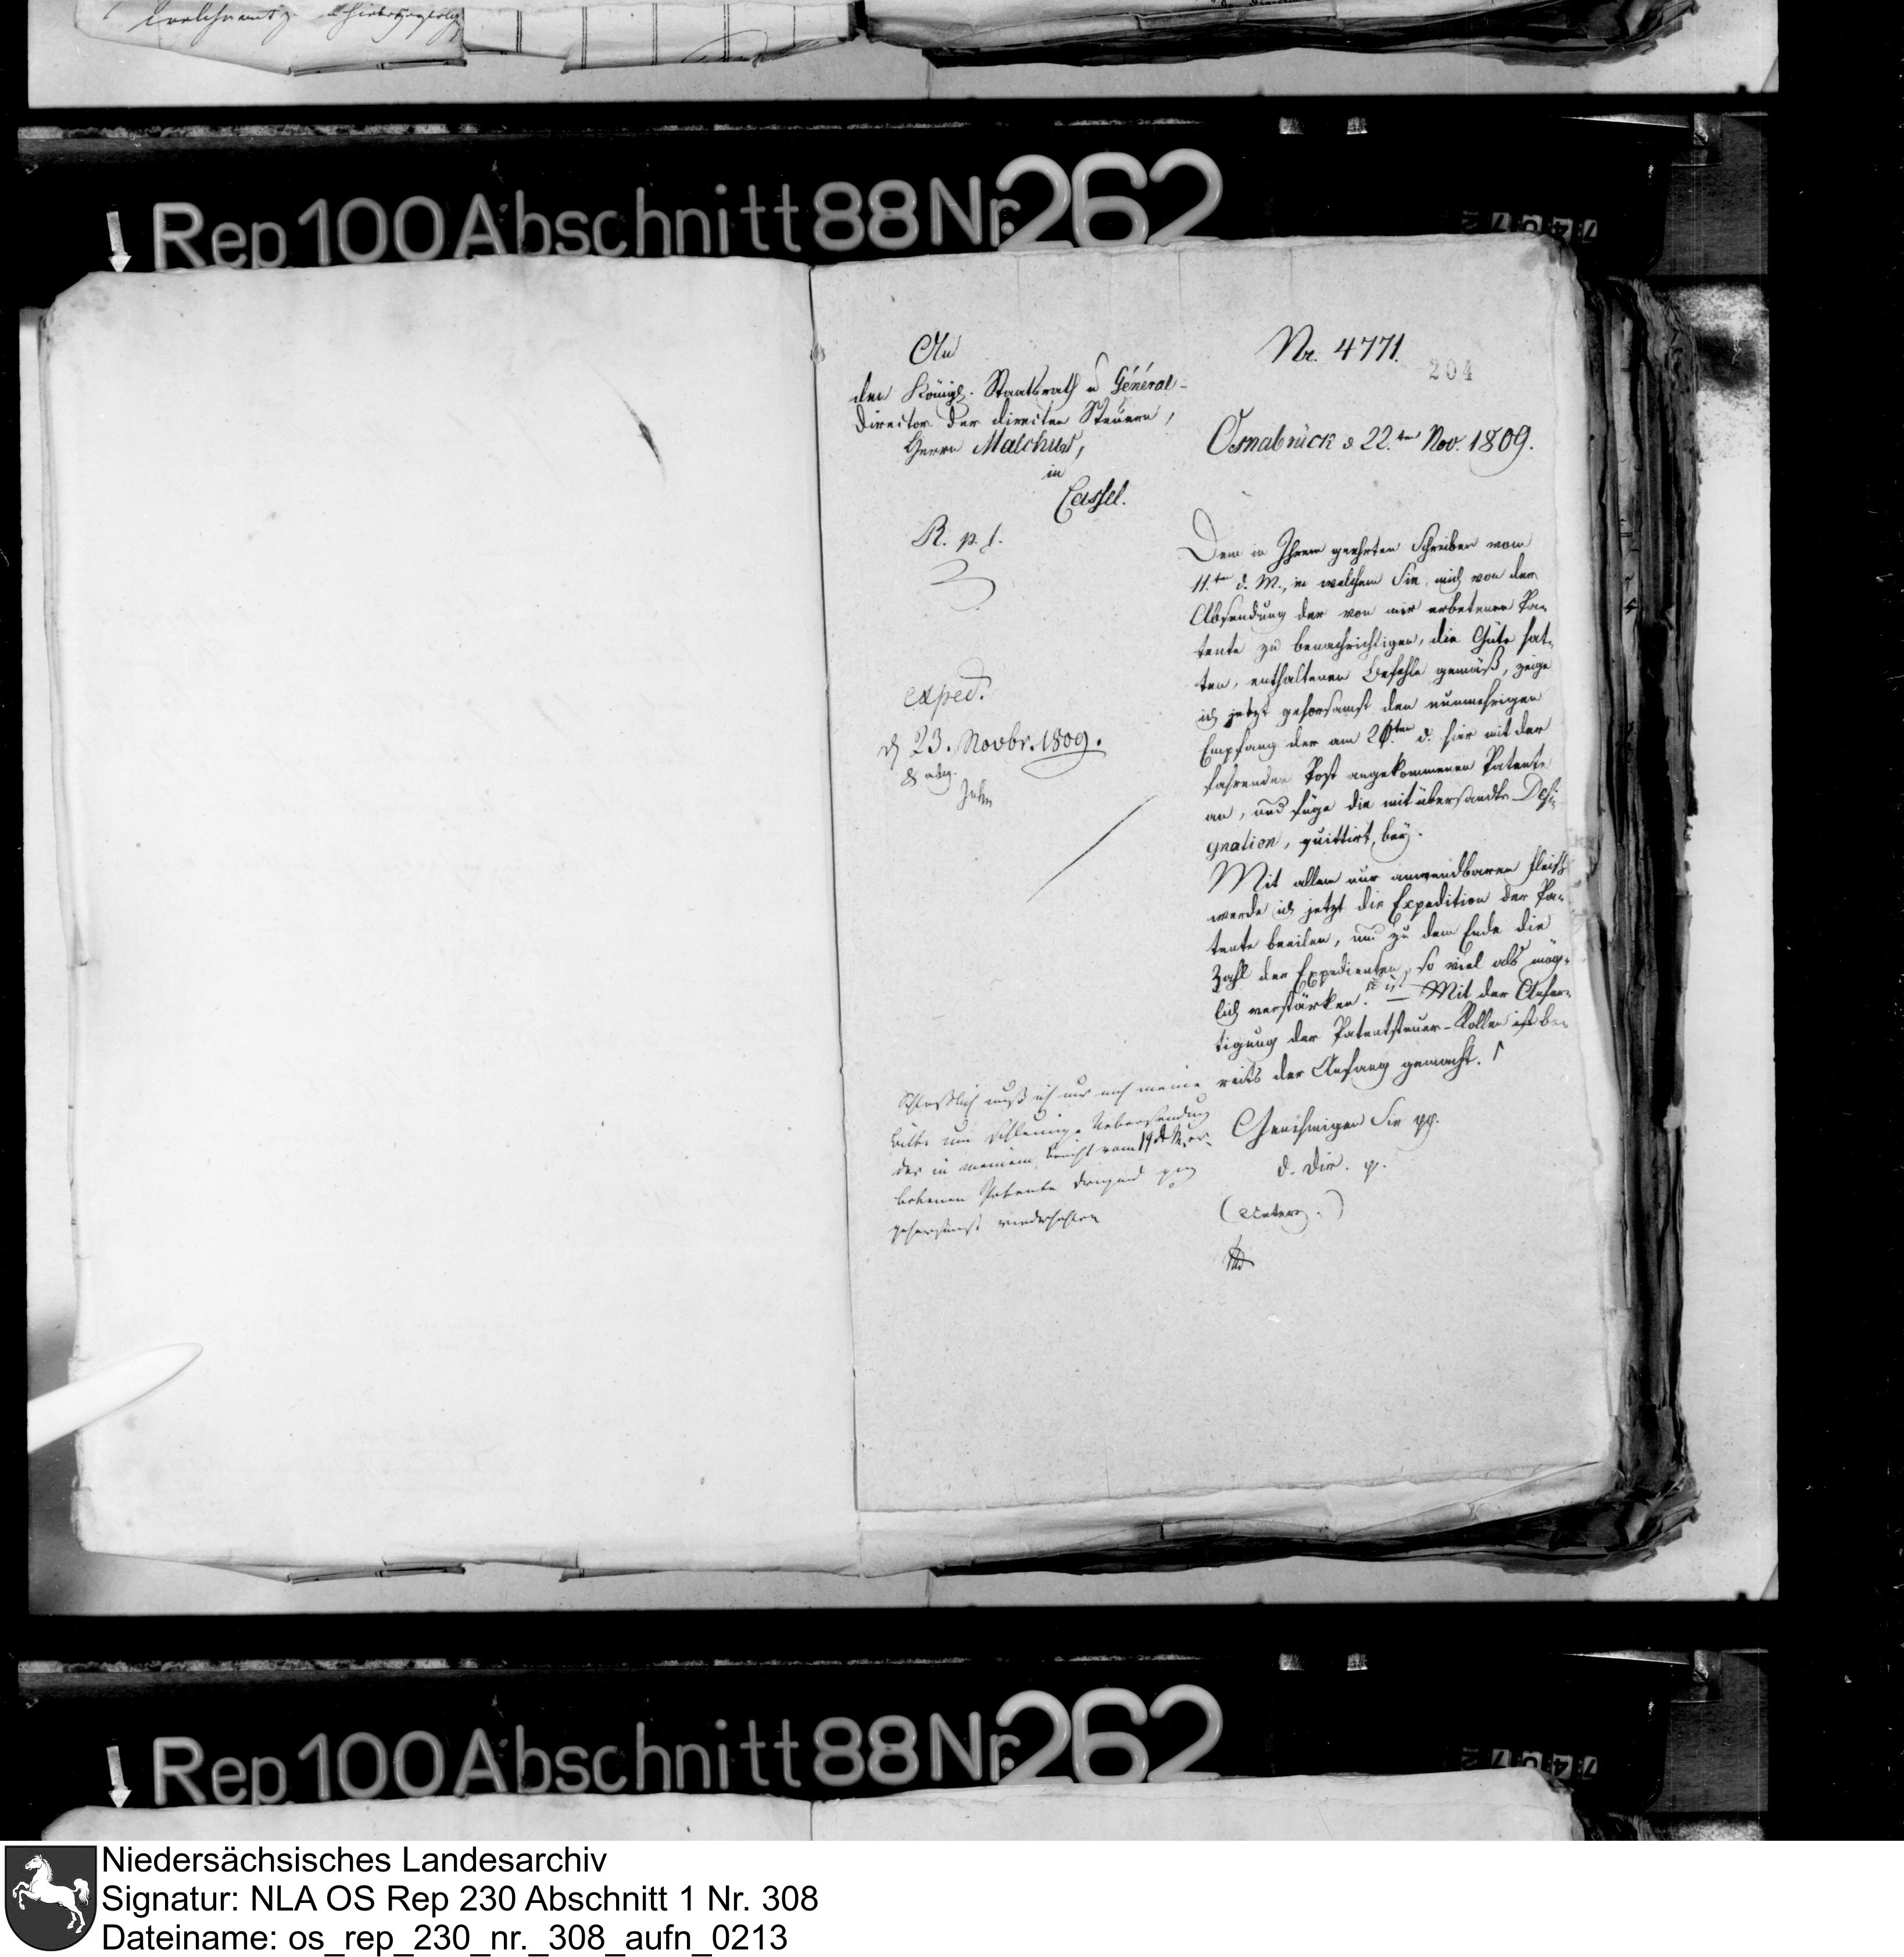 Rep 100 Abschnitt 88 Nr. 262
An
den Königl. Staatsrath u Général-
Director der directen Steuern,
Herrn Malchus,
in
Cassel.
R. p. f.
exped.
d 23. Novbr. 1809.
Nr. 4771.
204
Osnabrück d 22.ten Nov. 1809.
Dem in Ihrem geehrten Schreiben vom
11.ten d. M., in welchem Sie mich von der
Absendung der von mir erbetenen Pa-
tente zu benachrichtigen, die Güte hat-
ten, enthaltenen Befehle gemäß, zeige
ich jetzt gehorsamst den nunmehrigen
Empfang der am ten d. hier mit der
fahrenden Post angekommenen Patente
an, und füge die mitübersandte Desi-
gnation, quittirt, bey.
Mit allem nur anwendbaren Fleiß
werde ich jetzt die Expedition der Pa-
tente beeilen, und zu dem Ende die
Zahl der Expedienten, so viel als mög-
lich verstärken. Mit der Anfer-
tigung der Patentsteuer-Rollen ist be-
reits der Anfang gemacht.
Schließlich muß ich nur noch meine
Bitte um schleunige Uebersendung
der in meinem Bericht vom 19 d. M. er-
betenen Patente dringend
gehorsamst wiederholen
Genehmigen Sie pp.
d. Dir. p.
(Unterz.)
Rep 100 Abschnitt 88 Nr. 262
Niedersächsisches Landesarchiv
Signatur: NLA OS Rep 230 Abschnitt 1 Nr. 308
Dateiname: os_rep_230_nr._308_aufn_0213